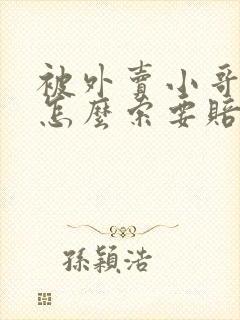 被外賣小哥
怎麼索要賠
孫穎浩